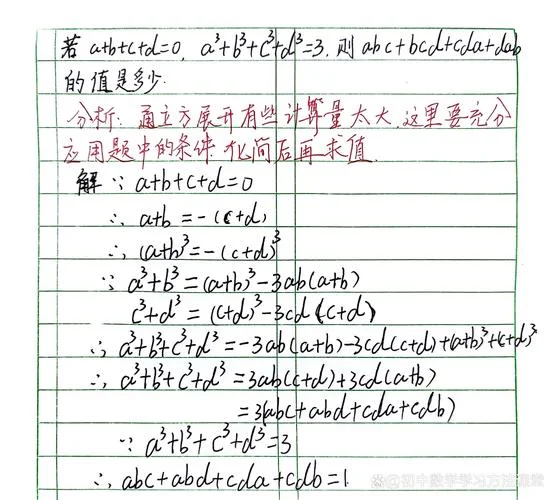 若 a+b+c+d=0, a³+b³+c³+d³=3, 则 abc+bcd+cda+dab
的值是多少.
分析: 通立方展开有些计算量太大, 这里要充分
应用题中的条件, 化简后再求值.
解 ∵ a+b+c+d=0
∴ a+b = -(c+d)
∴ (a+b)³=-(c+d)³
∵ a³+b³=(a+b)³-3ab(a+b)
c³+d³=(c+d)³-3cd(c+d)
∴ a³+b³+c³+d³=-3ab(a+b)-3cd(c+d)+(a+b)³+(c+d)³
∴ a³+b³+c³+d³=3ab(c+d)+3cd(a+b)
=3(abc+abd+cda+cdb)
∵ a³+b³+c³+d³=3
∴ abc+abd+cda+cdb=1
@初中数学学习方法